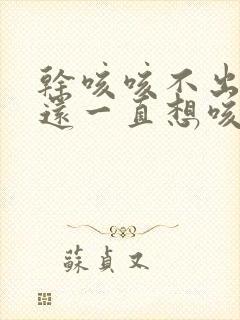 幹咳咳不出
還一直想咳
蘇貞又